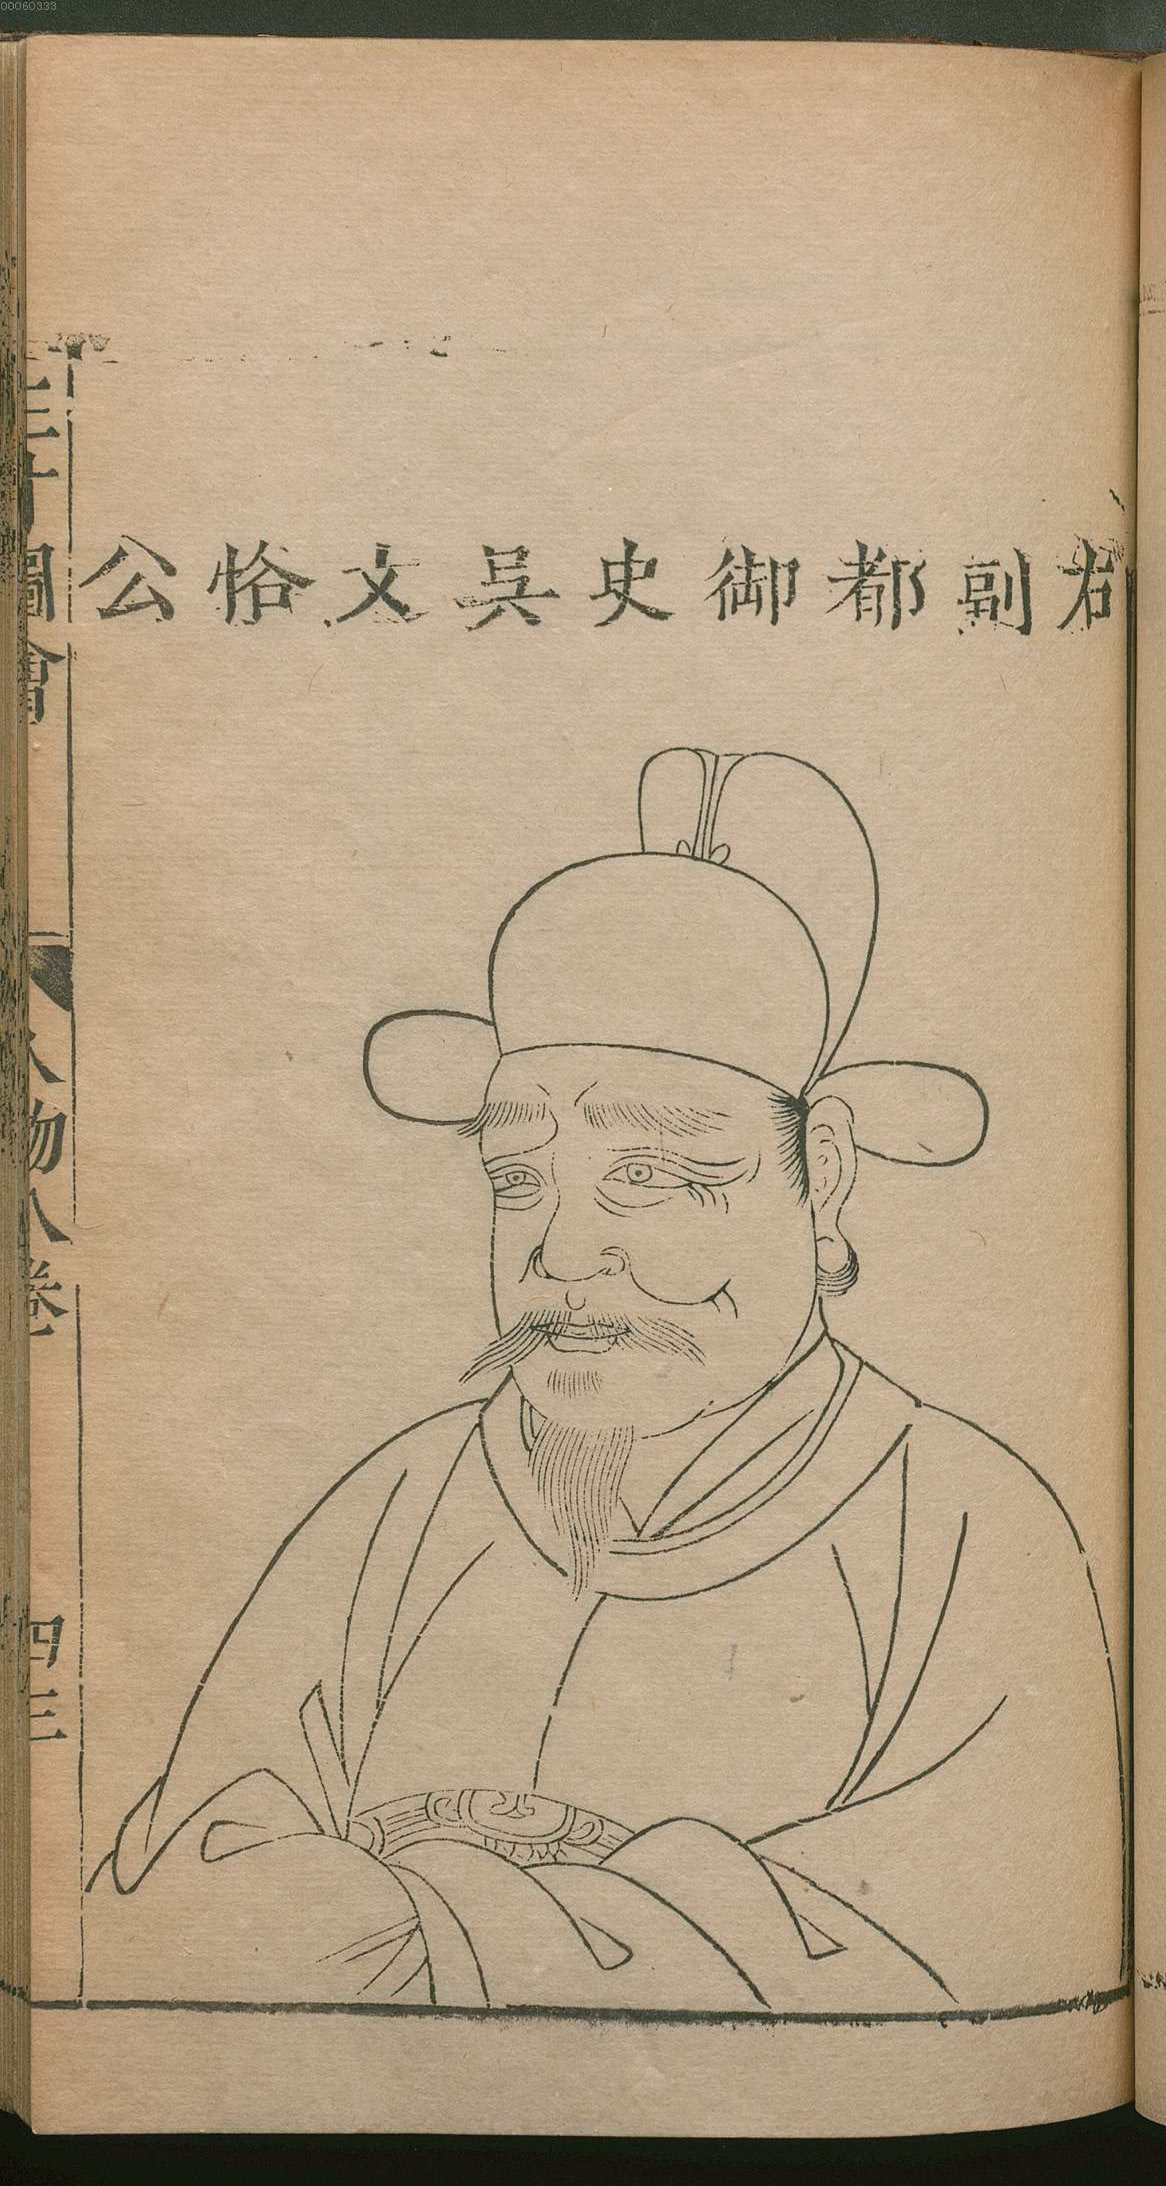 00060333
右副都御史吳文恪公
三才圖會
人物八卷
四三